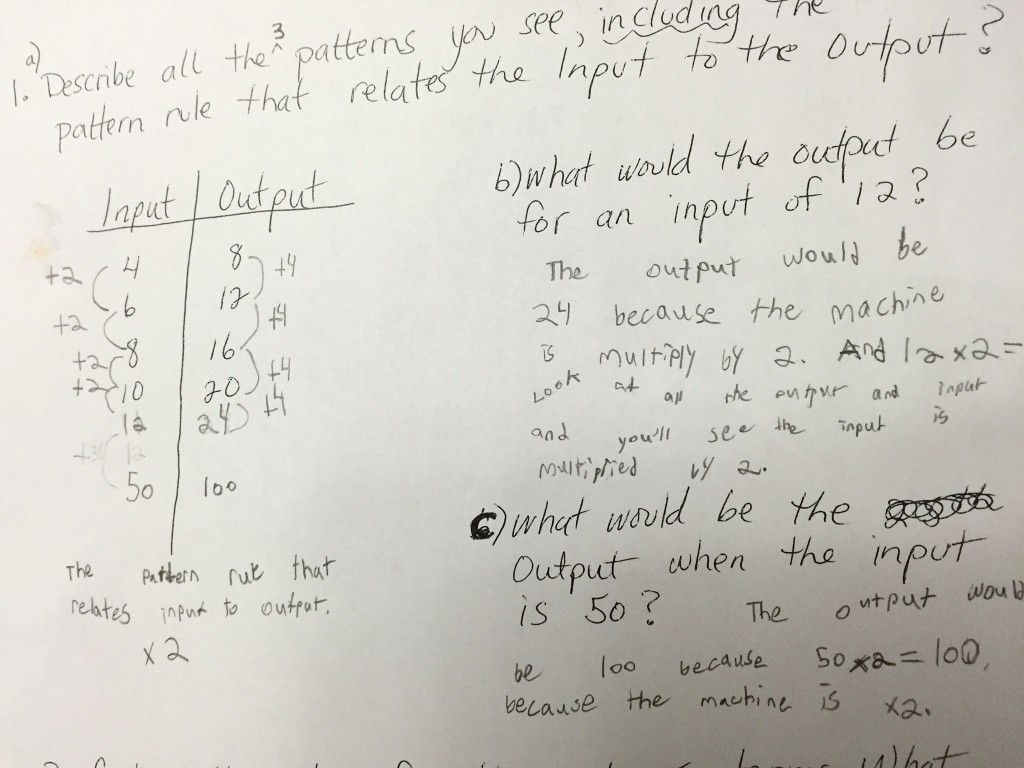 a)
1. Describe all the 3 patterns you see, including the
pattern rule that relates the Input to the output?
Input Output
+2 4 8 +4
+2 6 12 +4
+2 8 16 +4
+2 10 20 +4
12 24
12
50 100
The pattern rule that
relates input to output.
x 2
b) what would the output be
for an input of 12?
The output would be
24 because the machine
is multiply by 2. And 12 x 2 =
Look at all the output and input
and you'll see the input is
multiplied by 2.
c) what would be the
output when the input
is 50? The output would
be 100 because 50 x 2 = 100,
because the machine is x2.
What